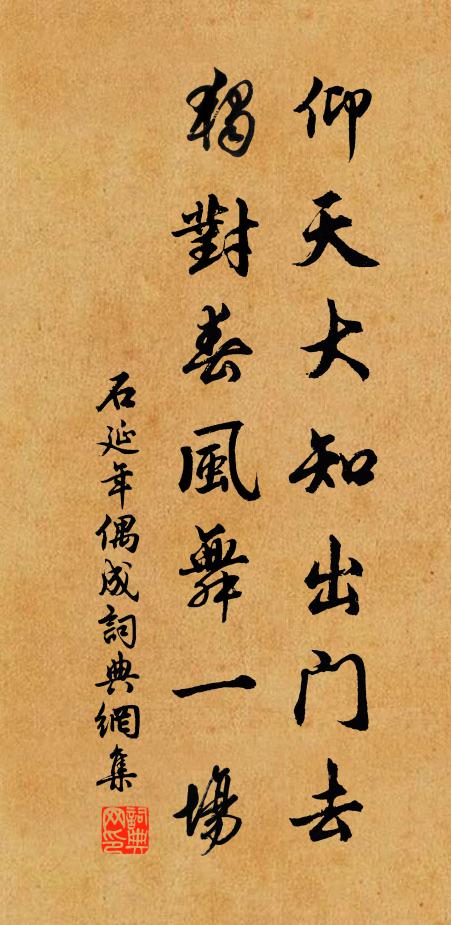 仰天大知出门去
獨對春風舞一場
石延年偶成詞典網集
詞典网印